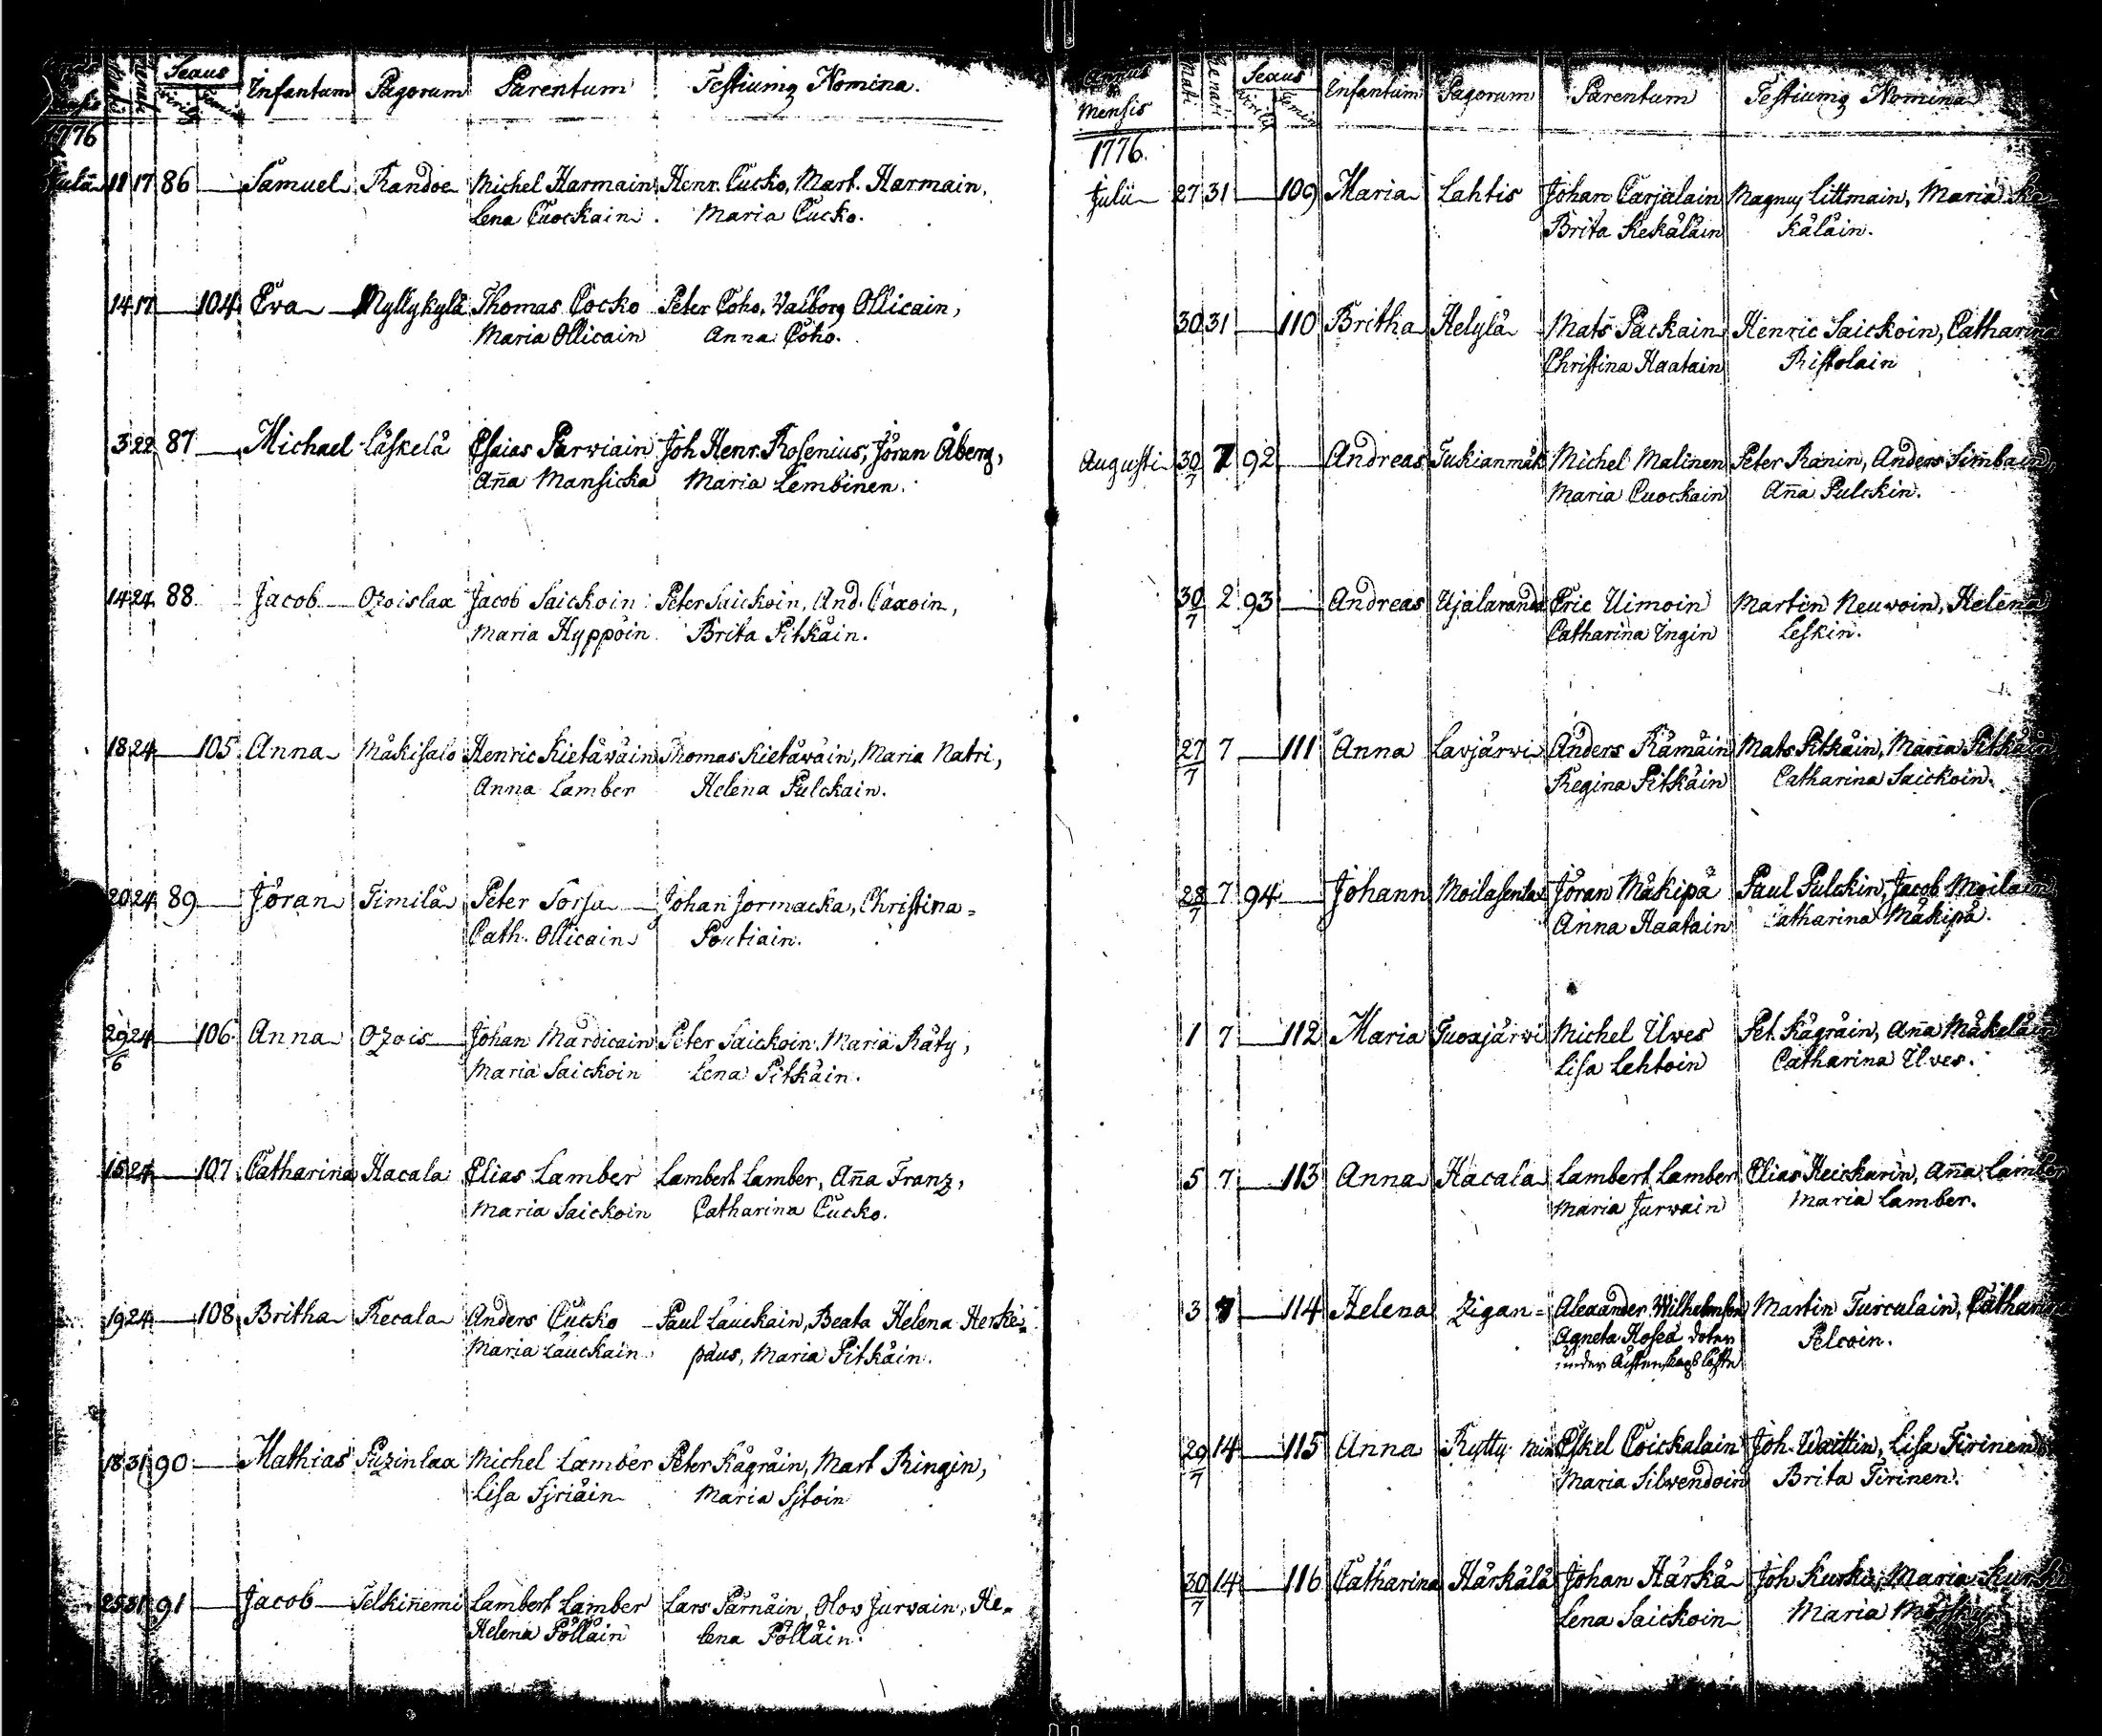 Sexus
Infantum Pagorum Parentum Testiumq Nomina.
1776
11 17 86 Samuel Randoe Michel Harmain Henr. Cucko, Mart. Harmain,
Lena Cuockain Maria Cucko.
14 17 104 Eva Myllykylä Thomas Cocko Peter Coho, Valborg Ollicain,
Maria Ollicain Anna Coho.
3 22 87 Michael Läskelä Esaias Parwiain Joh Henr. Rosenius, Jöran Åberg,
Aña Mansicka Maria Lembinen.
14 24 88 Jacob Ozoislax Jacob Saickoin Peter Saickoin, And. Caxoin,
Maria Hyppöin Brita Pitkäin.
18 24 105 Anna Mäkisalo Henric Kietäwäin Thomas Kietäwäin, Maria Natri,
Anna Lamber Helena Pulckain.
20 24 89 Jöran Timilä Peter Torsa Johan Jormacka, Christina
Cath. Ollicain Poutiain.
29/6 24 106 Anna Ozois Johan Mardicain Peter Saickoin, Maria Räty,
Maria Saickoin Lena Pitkäin.
15 24 107 Catharina Hacala Elias Lamber Lambert Lamber, Aña Franz,
Maria Saickoin Catharina Cucko.
19 24 108 Britha Recala Anders Cucko Paul Lauckain, Beata Helena Herke=
Maria Lauckain päus, Maria Pitkäin.
18 31 90 Mathias Puzinlax Michel Lamber Peter Kägräin, Mart Ringin,
Lisa Sjriäin Maria Sjtoin
25 31 91 Jacob Telkiñemi Lambert Lamber Lars Pärnäin, Olov Jurvain, He=
Helena Pölläin lena Pölläin.
Annus
Mensis Nati Renati Sexus Infantum Pagorum Parentum Testiumq Nomina
1776.
Julii 27 31 109 Maria Lahtis Johan Carjalain Magnus Littmain, Maria Ke
Brita Kekäläin käläin.
30 31 110 Britha Helylä Mats Packain Henric Saickoin, Catharina
Christina Haatain Ristolain
Augusti 30/7 7 92 Andreas Tukianmäk Michel Malinen Peter Ranin, Anders Simbain,
Maria Cuockain Aña Pulckin.
30/7 2 93 Andreas Ujalaranda Eric Uimoin Martin Neuvoin, Helena
Catharina Ingin Leskin.
27/7 7 111 Anna Lavjärwi Anders Rämäin Mats Pitkäin, Maria Pitkäin
Regina Pitkäin Catharina Saickoin.
28/7 7 94 Johann Moilasenlax Jöran Mäkipä Paul Pulckin, Jacob Moilain
Anna Haatain Catharina Mäkipä.
1 7 112 Maria Tuoxjärwi Michel Ilves Pet. Kägräin, Aña Mäkeläin
Lisa Lehtoin Catharina Ilves.
5 7 113 Anna Hacala Lambert Lamber Elias Heickarin, Aña Lamber
Maria Jurvain Maria Lamber.
3 7 114 Helena Zigan= Alexander Wilhelmson Martin Turculain, Catharina
Agneta Hosea doter Pelcoin.
under
29/7 14 115 Anna Rytty Eskel Coickalain Joh. Waittin, Lisa Tirinen
Maria Silvendoin Brita Tirinen.
30/7 14 116 Catharina Härkälä Johan Härkä Joh Kurki, Maria Kurki
Lena Saickoin Maria